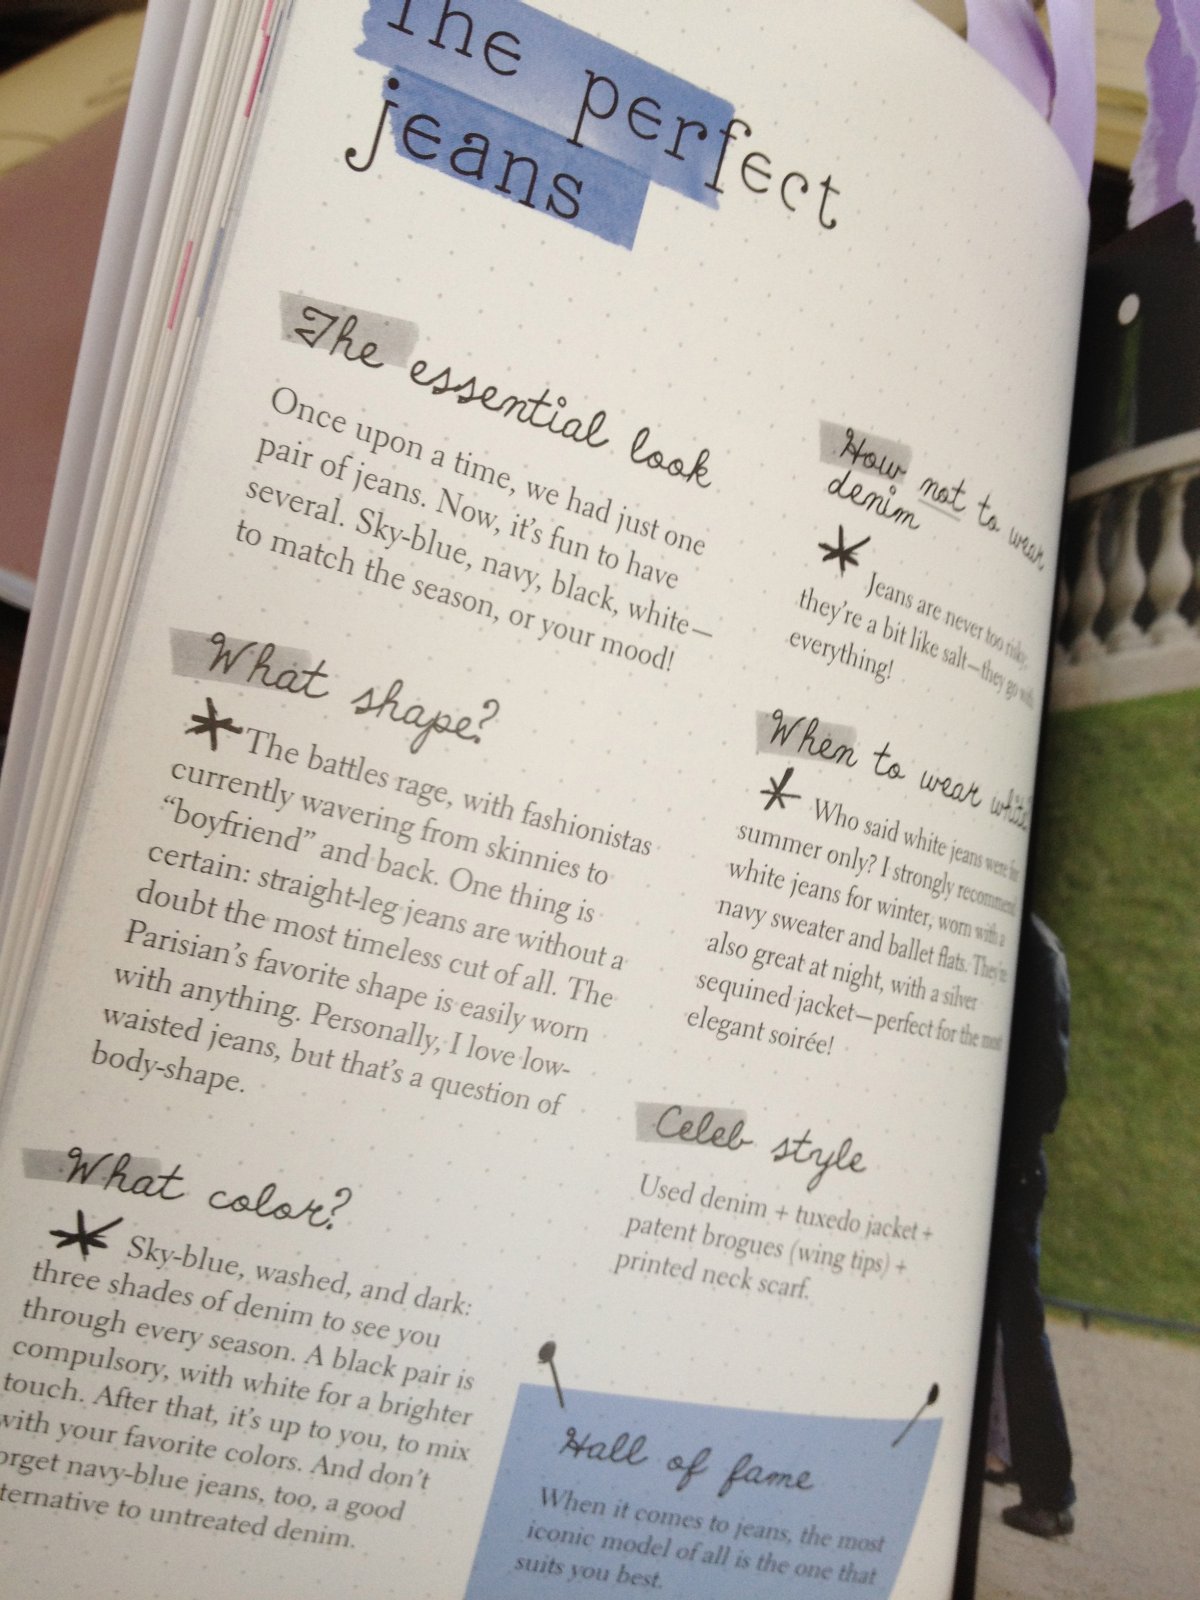 The perfect
jeans
The essential look
Once upon a time, we had just one
pair of jeans. Now, it's fun to have
several. Sky-blue, navy, black, white—
to match the season, or your mood!
What shape?
The battles rage, with fashionistas
currently wavering from skinnies to
"boyfriend" and back. One thing is
certain: straight-leg jeans are without a
doubt the most timeless cut of all. The
Parisian's favorite shape is easily worn
with anything. Personally, I love low-
waisted jeans, but that's a question of
body-shape.
What color?
Sky-blue, washed, and dark:
three shades of denim to see you
through every season. A black pair is
compulsory, with white for a brighter
touch. After that, it's up to you, to mix
with your favorite colors. And don't
orget navy-blue jeans, too, a good
ternative to untreated denim.
How not to wear
denim
Jeans are never too risky,
they're a bit like salt—they go with
everything!
When to wear white?
Who said white jeans were for
summer only? I strongly recommend
white jeans for winter, worn with a
navy sweater and ballet flats. They're
also great at night, with a silver
sequined jacket—perfect for the most
elegant soirée!
Celeb style
Used denim + tuxedo jacket +
patent brogues (wing tips) +
printed neck scarf.
Hall of fame
When it comes to jeans, the most
iconic model of all is the one that
suits you best.